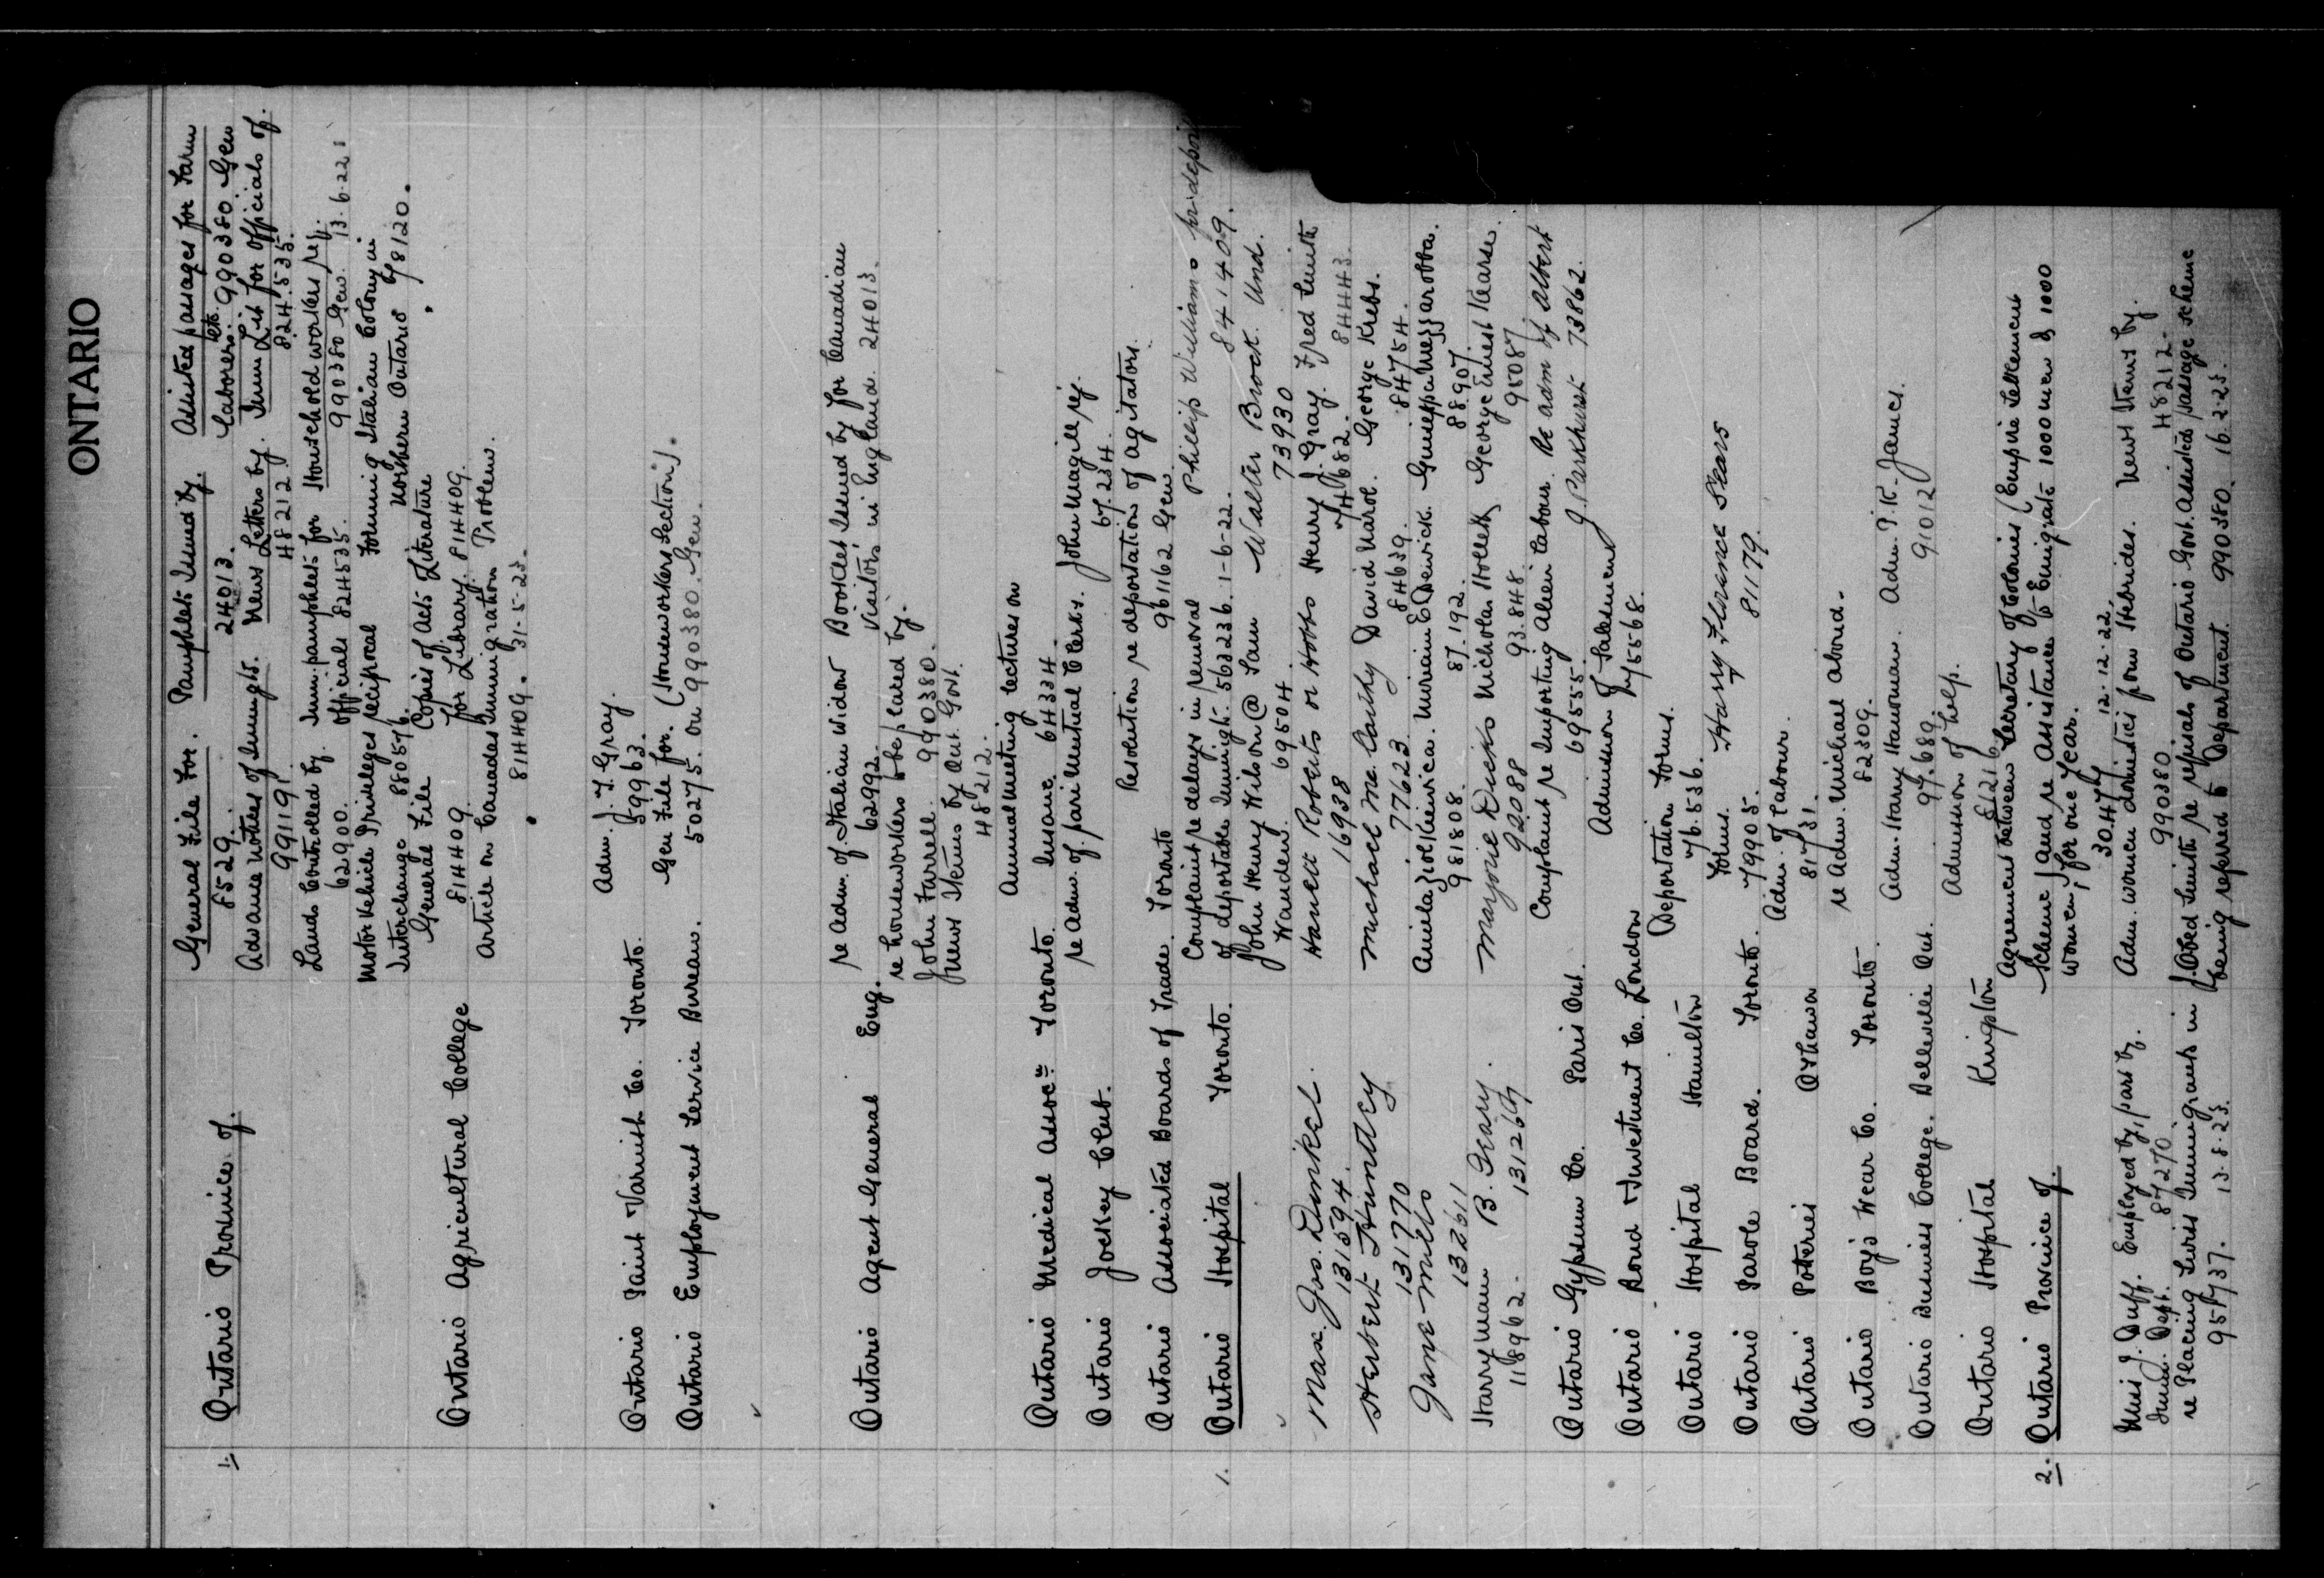 ONTARIO
1. Ontario Province of.
General File For. Pamphlets Issued by. Assisted passages for Farm
8529. 24013. Laborers etc. 990380 Gen
Advance Notices of Immigts. News Letters by. Imm Lit for Officials of.
991191 48212 824535.
Lands Controlled by. Imm. pamphlets for Household workers re
62900. Officials 824535. 990380 Gen. 13.6.22
Motor Vehicle Privileges reciprocal Forming Italian Colony in
Interchange 880576. Northern Ontario 978120.
Ontario Agricultural College General File Copies of Acts Literature
814409 for Library. 814409.
Article on Canadas Immigration Problem.
814409. 31-5-23.
Ontario Paint & Varnish Co. Toronto. Adm. J. T. Gray.
59963.
Ontario Employment Service Bureau. Gen File for. (Houseworkers Section).
50275. on 990380. Gen.
Ontario Agent General Eng. re Adm. of. Italian Widow Booklet Issued by for Canadian
62992. Visitors in England. 24013.
re houseworkers to be placed by.
John Farrell. 990380.
News Items by Ont. Govt.
48212.
Ontario Medical Assoc= Toronto. Annual Meeting Lectures on
Insane. 64334.
Ontario Jockey Club. re Adm. of. pari Mutual Clerks. John Magill re
67.234.
Ontario Associated Boards of Trade. Toronto Resolution re deportation of agitators.
961162 Gen.
1. Ontario Hospital Toronto. Complaint re delays in removal Phillip Williams
of deportable Immigts. 563236. 1-6-22. 841409.
John Henry Wilson @ Sam Walter Brock. Und.
Wanden. 69504. 73930
Max. Jos. Dunkel. Hancett Roberts or Hobbs Henry J. Gray. Fred Smith
131594. 16938 74682. 84443.
Herbert Huntley Michael Mc. Carthy David Marol. George Krebs.
131770 77623. 84639. 84754.
Jane Mills Miriam E Dewick.
132611 981808. 87.192. 88.907.
Harryman B. Geary. Marjorie Dicks Nicholas Hollett George Ernest Kearse.
118962. 131267 92088 93.848. 95087
Ontario Gypsum Co. Paris Ont. Complaint re Importing Alien Labour. Re adm of Albert
69555. J. Parkhurst 73862.
Ontario Bond & Investment Co. London Admission of
Ontario Hospital Hamilton Deportation Forms.
76.536.
Ontario Parole Board. Toronto. Forms. Harry Florance Sears
79905. 81179.
Ontario Poteries Oshawa Adm. of Labour.
81731.
Ontario Boy's Wear Co. Toronto. re Adm. Michael Aboud.
82309.
Ontario Business College. Belleville Ont. Adm. Harry Hawman. Adm. J. K. James.
97.689. 91012
Ontario Hospital Kingston Admission of help.
81216
2. Ontario Province of. Agreement between Secretary of Colonies (Empire Settlement
Scheme) and re Assistance to Emigrate 1000 men & 1000
women, for one Year.
30477 12.12.22.
Miss J. Duff. Employed by, pass by. Adm. women domestics from Hebrides. News Items by.
Imm. Dept. 87270 990380 48212.
re Placing Swiss Immigrants in J. Obed Smith re refusals of Ontario Govt. Assisted passage scheme
95737. 13.8.23. being referred to Department. 990380. 16.2.23.